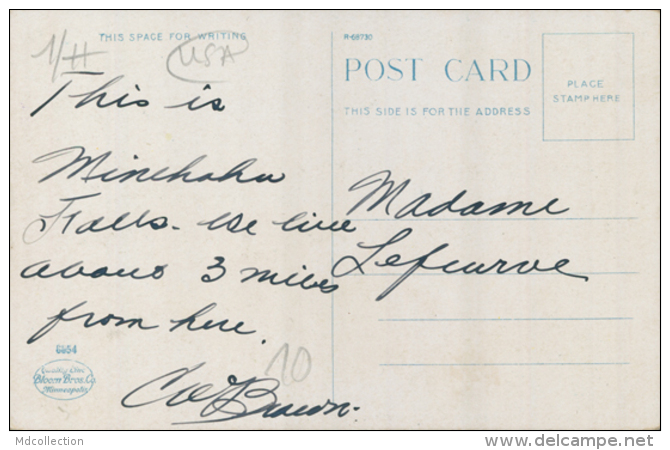 1/H
USA
THIS SPACE FOR WRITING
R-68730
POST CARD
THIS SIDE IS FOR THE ADDRESS
PLACE
STAMP HERE
This is
Minehaha
Falls. We live
about 3 miles
from here.
Brown.
Madame
Lefeurve
10
6654
Quality Line
Bloom Bros. Co
Minneapolis
Mdcollection
www.delcampe.net